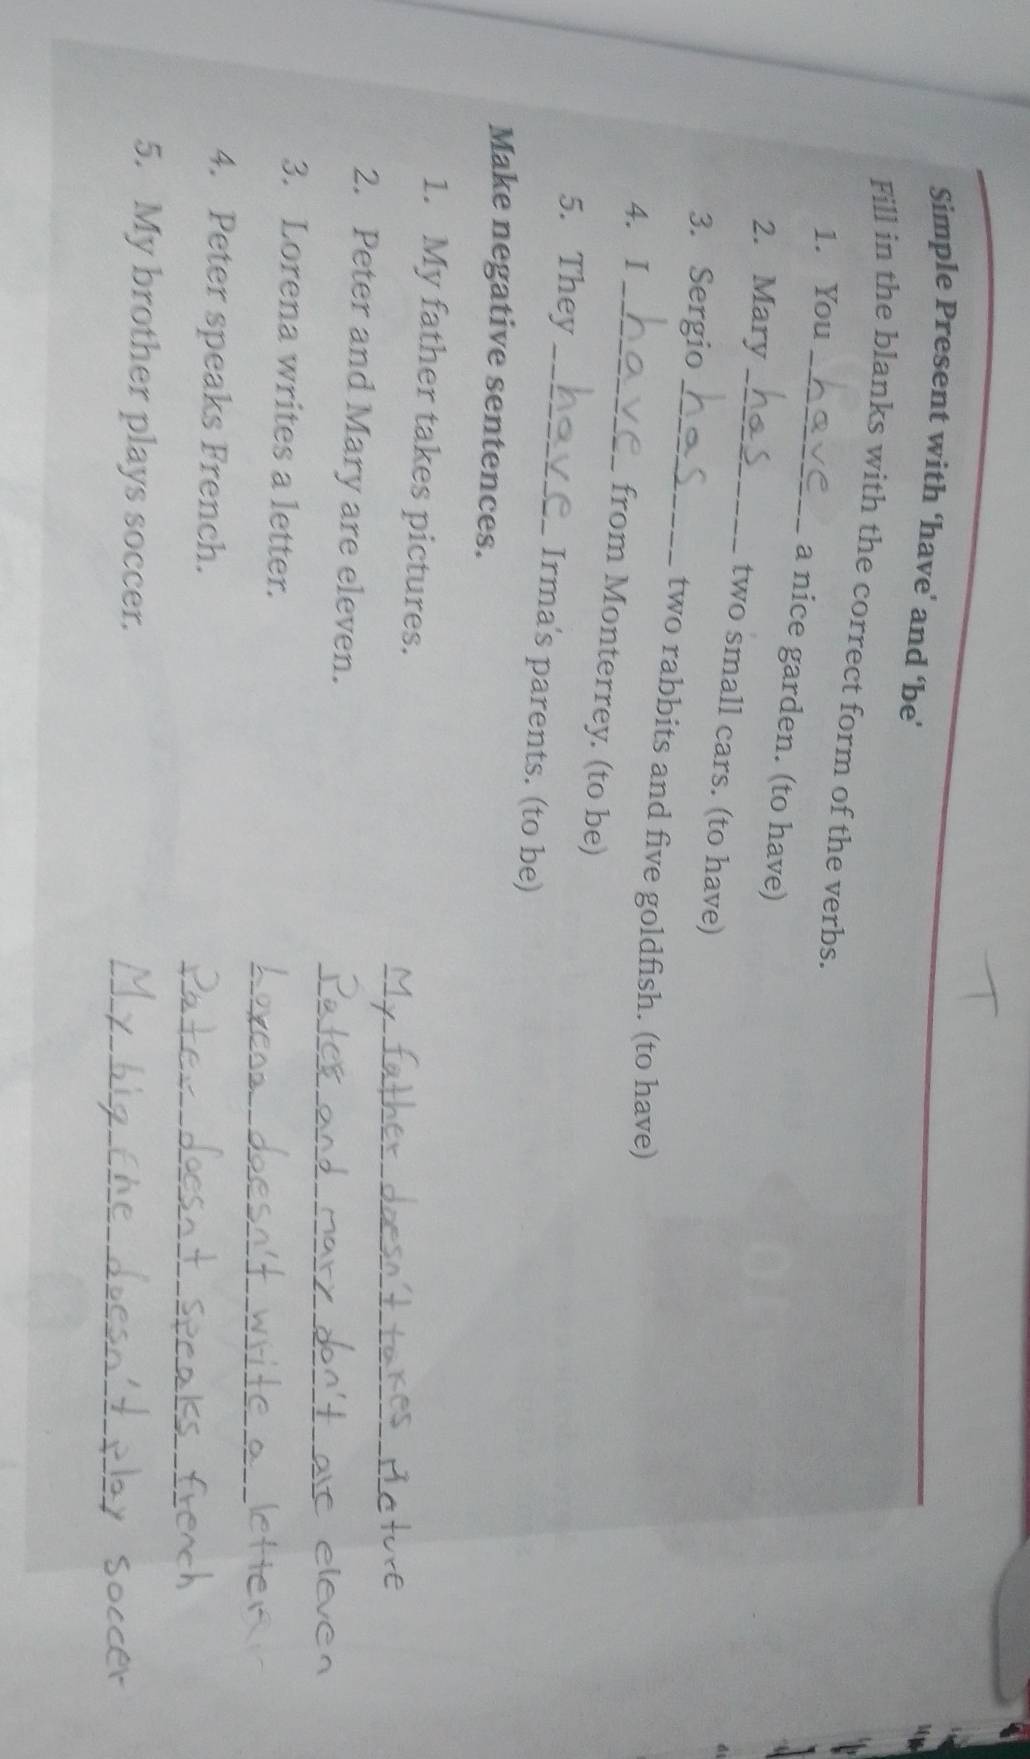 T
Simple Present with 'have' and 'be'
Fill in the blanks with the correct form of the verbs.
1. You have a nice garden. (to have)
2. Mary has two small cars. (to have)
3. Sergio has two rabbits and five goldfish. (to have)
4. I have from Monterrey. (to be)
5. They have Irma's parents. (to be)
Make negative sentences.
1. My father takes pictures. My father doesn't takes picture
2. Peter and Mary are eleven. Pater and mary don't are eleven
3. Lorena writes a letter. Lorena doesn't write a letter
4. Peter speaks French. Pater doesn't speaks french
5. My brother plays soccer. My doesn't play soccer